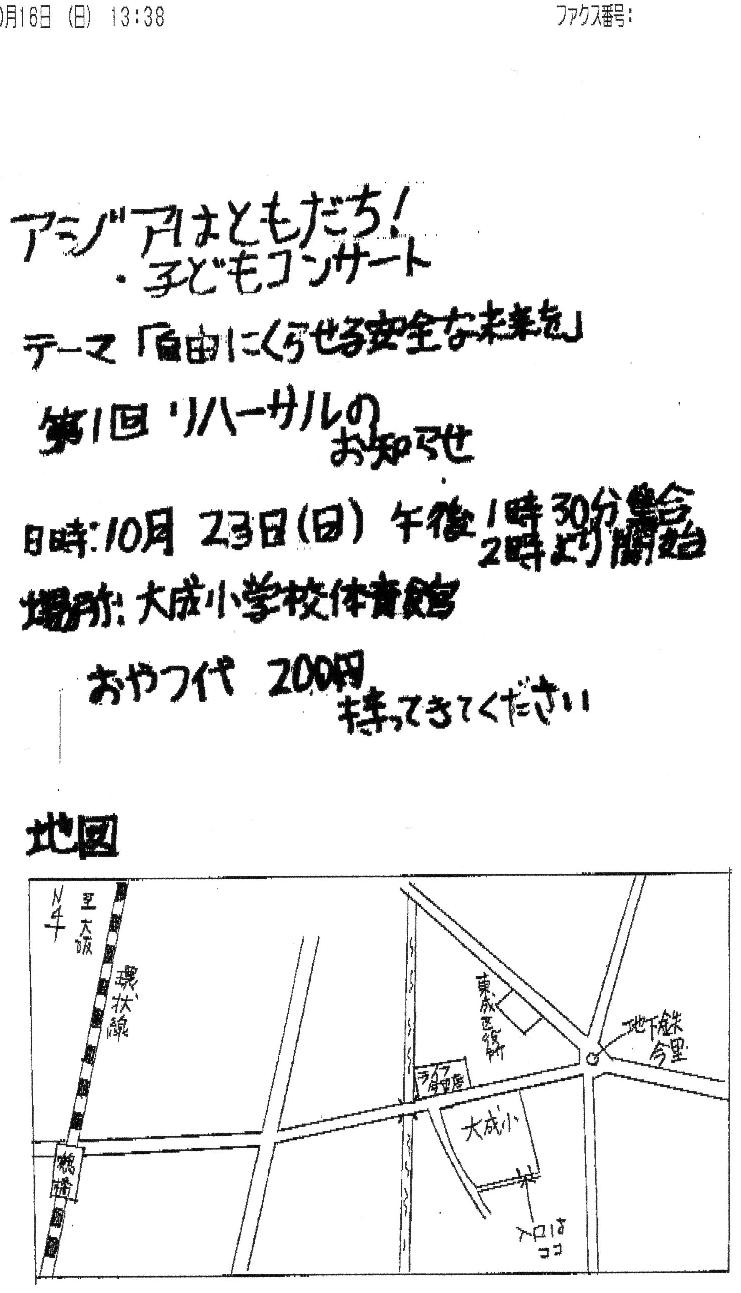 0月16日 (日) 13:38
ファクス番号:
アジアはともだち!
・子どもコンサート
テーマ「自由にくらせる安全な未来を」
第1回 リハーサルの
お知らせ
日時:10月 23日(日) 午後 1時30分集合
2時より開始
場所:大成小学校体育館
おやつ代 200円
持ってきてください
地図
N
至大阪
環状線
鶴橋
東成区役所
地下鉄
今里
ライフ
今里店
大成小
入口は
ココ